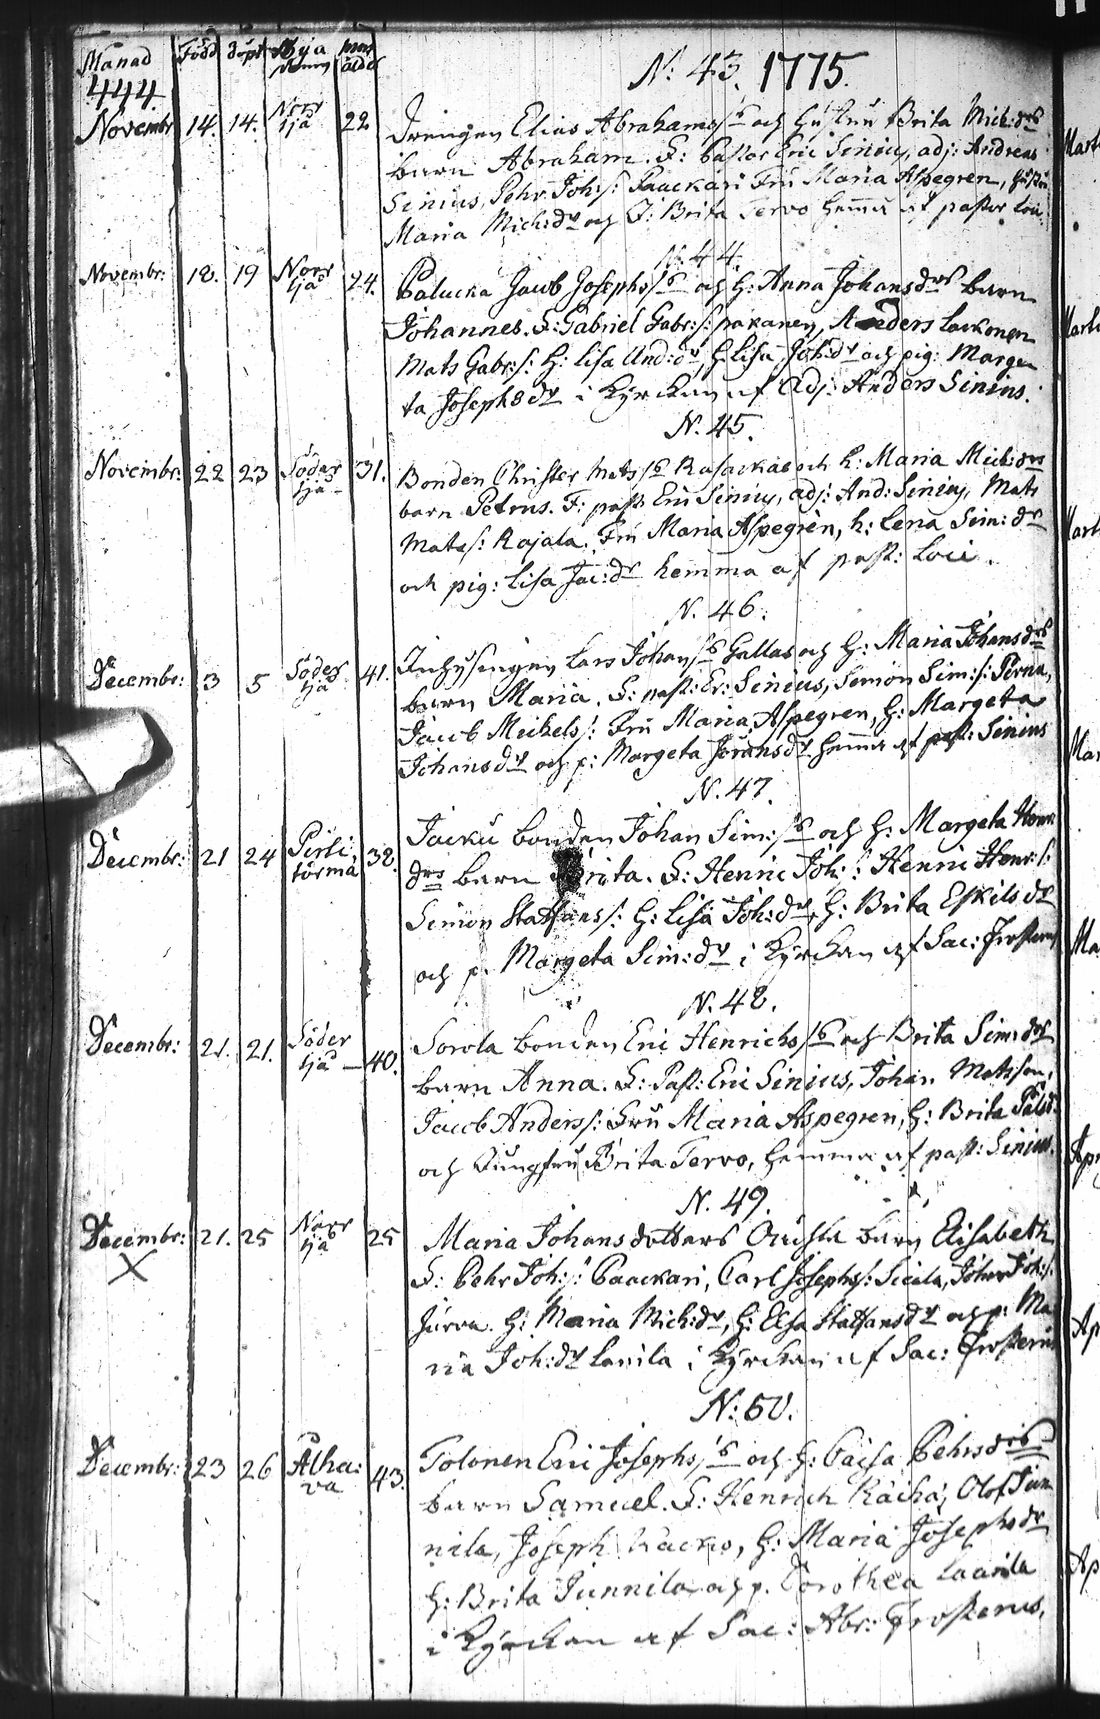 Månad Född Döpt Byanamn mors ålder
444.
N: 43. 1775.
Novembr 14. 14. Norrsjä 22
Drengen Elias Abrahams/s och Hustru Brita Mich:drs
barn Abraham. F: Pastor Eric Sinius, adj: Andreas
Sinius, Pehr Joh:s: Paackari Fru Maria Aspegren, Hustru
Maria Mich:dr och J: Brita Tervo hemma af pastor Loci
N. 44.
Novembr: 18. 19 Norrsjä 24.
Palucka Jacob Josephs/s och H: Anna Johansdrs barn
Johannes. F: Gabriel Gabr:s: pakanen, Anders Lackonen
Mats Gabr:s: H: Lisa And:dr, H: Lisa Joh:dr och pig: Marge
ta Josephsdr i Kyrckan af Adj: Anders Sinius.
N. 45.
Novembr: 22 23 Södersjä 31.
Bonden Christer Mats/s Rasackas och h: Maria Mich:drs
barn Petrus. F: past: Eric Sinius, adj: And: Sinius, Mats
Mats/: Rajala. Fru Maria Aspegren, h: Lena Sim:dr
och pig: Lisa Jac:dr hemma af past: Loci.
N. 46.
Decembr: 3 5 Södersjä 41.
Inhysingen Lars Johan/s Gallas och H: Maria Johansdrs
barn Maria. F: past: Er: Sinius, Simon Sim:s: Perna,
Jacob Michels/: Fru Maria Aspegren, H: Margeta
Johansdr och p: Margeta Joransdr hemma af past: Sinius
N. 47.
Decembr: 21 24 Perhi
törmä 38.
Jacku bonden Johan Sim:/s och H: Margeta Henr:
drs barn Brita. F: Henric Joh:s: Henric Henr:s:
Simon Staffans/: H: Lisa Joh:dr, H: Brita Eskilsdr
och p. Margeta Sim:dr i Kyrckan af Sac: Frosterus
N. 48.
Decembr: 21. 21. Södersjä 40.
Sorola bonden Eric Henrichs/s och Brita Sim:drs
barn Anna. F: Past: Eric Sinius, Johan Matsson,
Jacob Anders/: Fru Maria Aspegren, H: Brita Pålsd:
och Jungfru Brita Tervo, hemma af past: Sinius.
N. 49.
Decembr: 21. 25 Norrsjä 25
X
Maria Johansdotters Oächta barn Elisabeth
F: Pehr Joh:s: Paackari, Carl Josephs/: Sicala, Johan Joh:s:
Jurva. H: Maria Mich:dr, H: Elsa Staffansdr och p: Ma
ria Joh:dr Lanila i Kyrckan af Sac: Frosterus
N: 50.
Decembr: 23 26 Alha:
va 43.
Tolonen Eric Josephs/s och H: Caisa Pehrsdrs
barn Samuel. F: Henrich Rächä, Olof Jun
nila, Joseph Kackio, H: Maria Josephsdr
H: Brita Junnila och p. Dorothea Laarila
i Kyrckan af Sac: Abr: Frosterus.